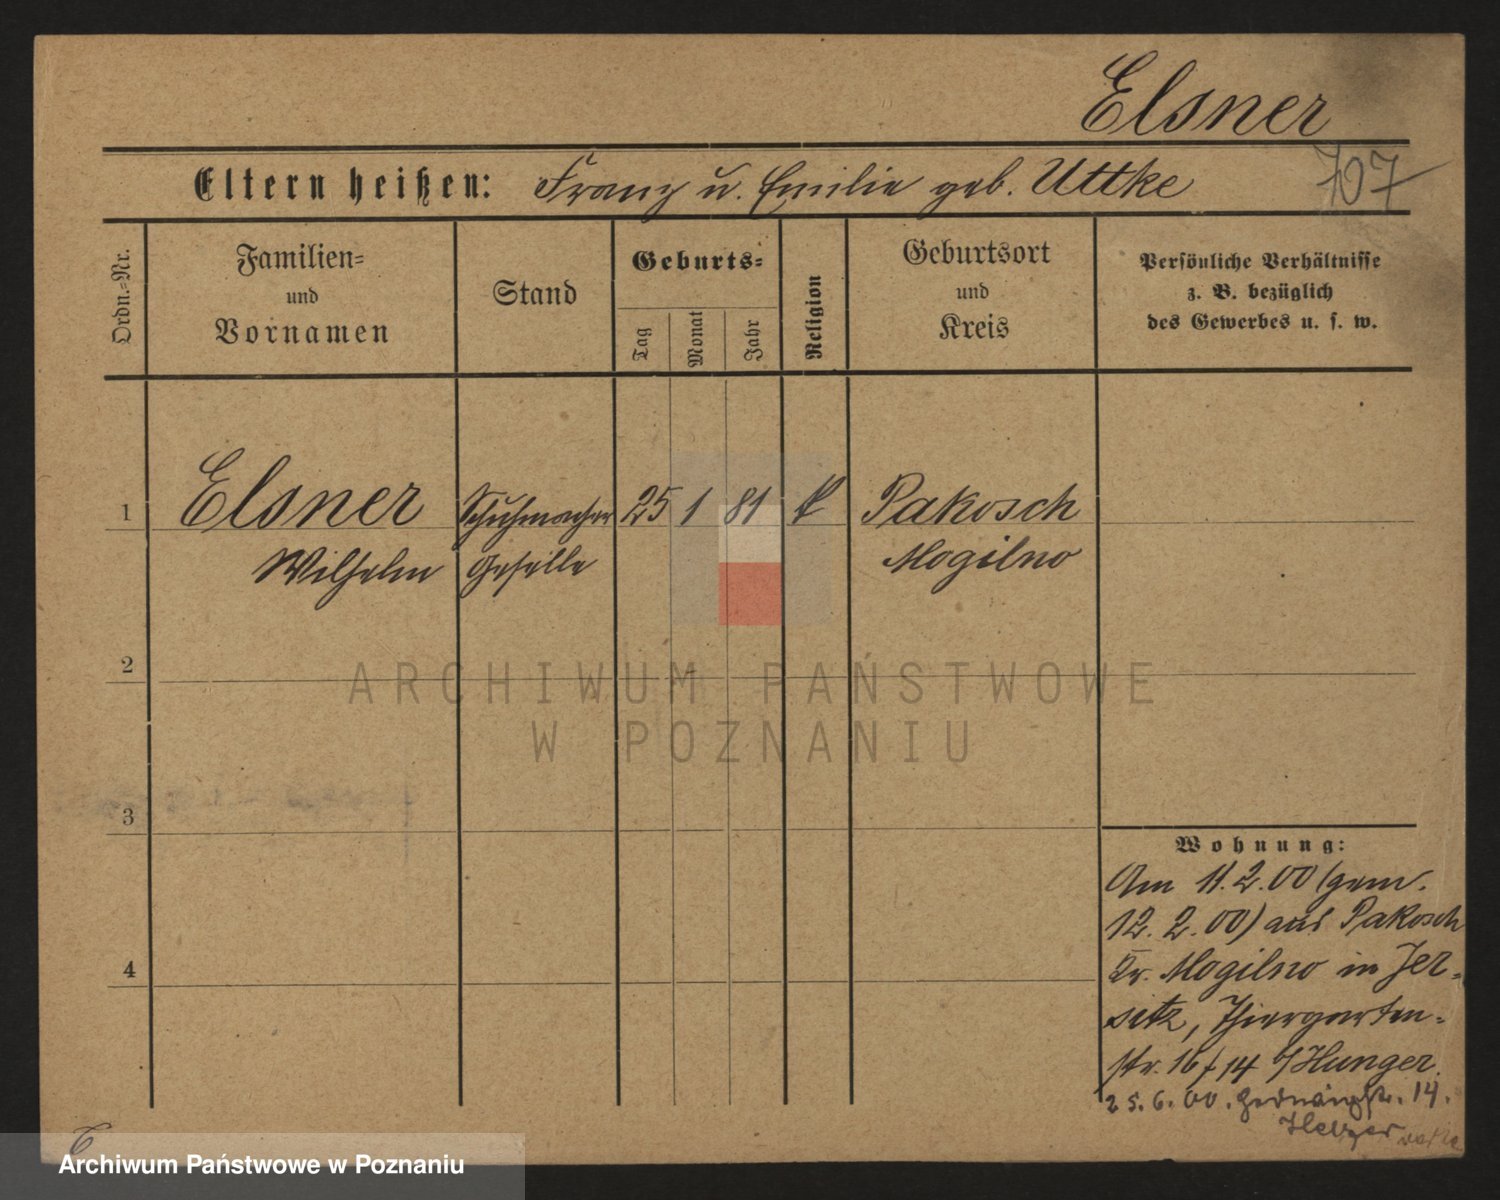 Elsner
Eltern heißen: Franz u. Emilie geb. Uttke
707
Ordn.-Nr.
Familien-
und
Vornamen
Stand
Geburts-
Tag
Monat
Jahr
Religion
Geburtsort
und
Kreis
Persönliche Verhältnisse
z. B. bezüglich
des Gewerbes u. s. w.
1 Elsner Schuhmacher 25 1 81 Pakosch
Wilhelm Geselle Mogilno
2
ARCHIWUM PAŃSTWOWE
W POZNANIU
3
4
Wohnung:
Am 11.2.00 (gem.
12.2.00) aus Pakosch
Kr. Mogilno in Jer-
sitz, Thiergarten-
str. 16/14 b/Hunger.
25.6.00. 14.
Archiwum Państwowe w Poznaniu